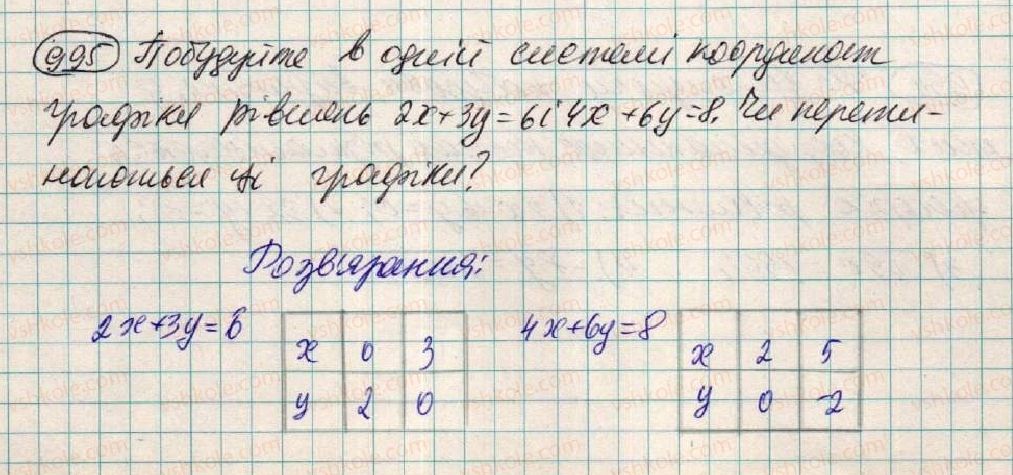 995 Побудуйте в одній системі координат
графіки рівнянь 2x+3y=6 і 4x+6y=8. Чи перети-
наються ці графіки?
Розв'язання:
2x+3y=6
x 0 3
y 2 0
4x+6y=8
x 2 5
y 0 -2